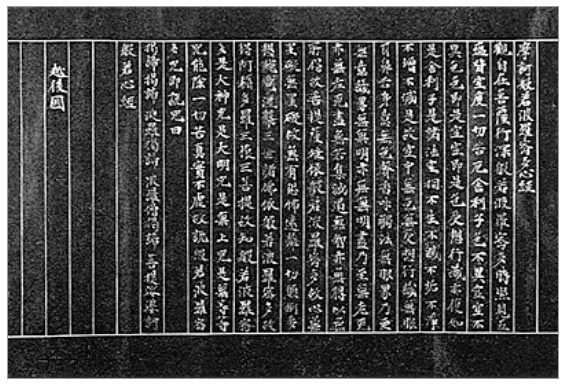 摩訶般若波羅蜜多心経
觀自在菩薩行深般若波羅蜜多時照見五
蘊皆空度一切苦厄舍利子色不異空空不
異色色即是空空即是色受想行識亦復如
是舍利子是諸法空相不生不滅不垢不淨
不增不減是故空中無色無受想行識無眼
耳鼻舌身意無色聲香味觸法無眼界乃至
無意識界無無明亦無無明盡乃至無老死
亦無老死盡無苦集滅道無智亦無得以無
所得故菩提薩埵依般若波羅蜜多故心無
罣礙無罣礙故無有恐怖遠離一切顛倒夢
想究竟涅槃三世諸佛依般若波羅蜜多故
得阿耨多羅三藐三菩提故知般若波羅蜜
多是大神咒是大明咒是無上咒是無等等
咒能除一切苦真實不虛故說般若波羅蜜
多咒即說咒曰
揭諦揭諦 波羅揭諦 波羅僧揭諦 菩提薩婆訶
般若心経
越後國